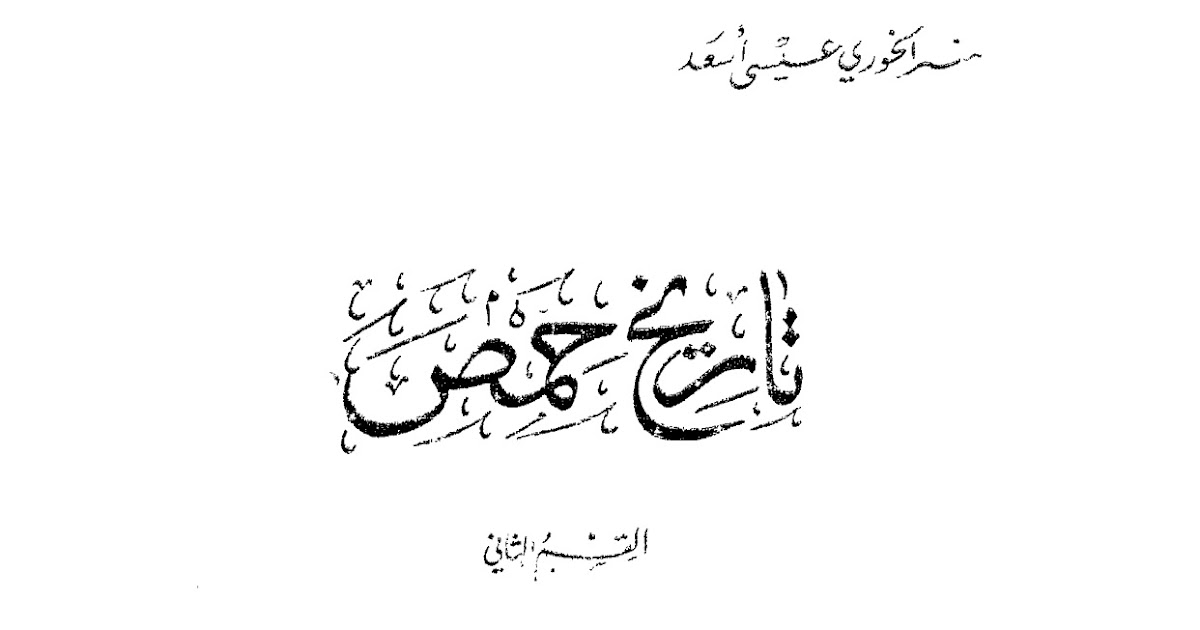 منير الخوري عيسى أسعد
تاريخ حمص
القسم الثاني